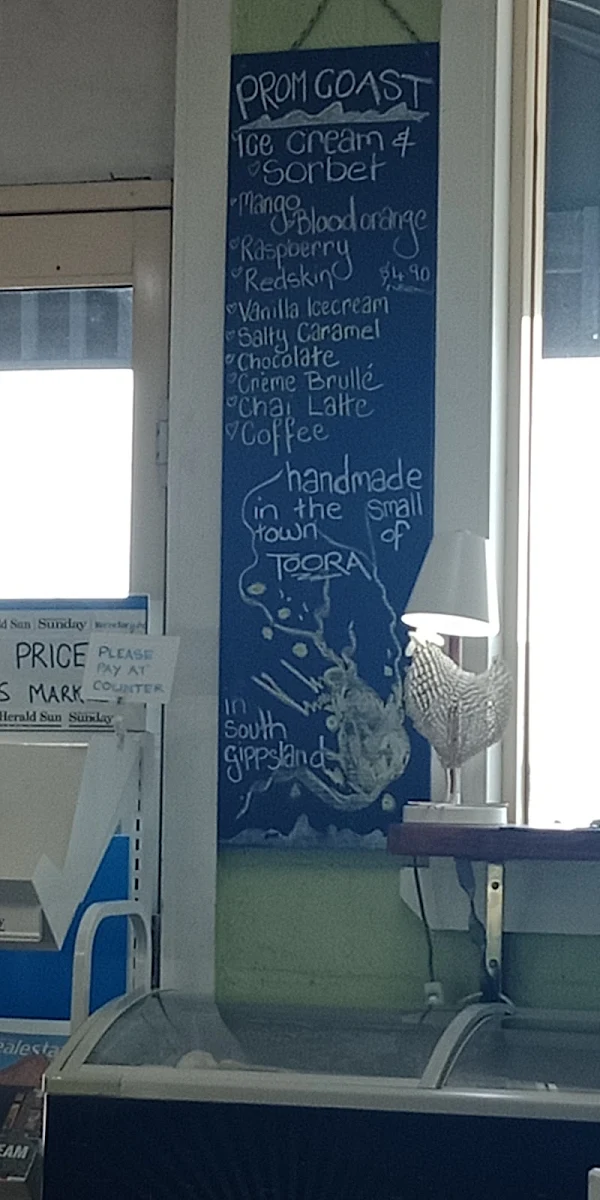 PROM COAST
Ice cream &
Sorbet
Mango
Blood orange
Raspberry
Redskin $4.90
Vanilla Icecream
Salty Caramel
Chocolate
Crème Brullé
Chai Latte
Coffee
handmade
in the small
town of
TOORA
in
South
Gippsland
ld Sun Sunday
PRICE
S MARK
Herald Sun Sunday
PLEASE
PAY AT
COUNTER
ealesta
EAM